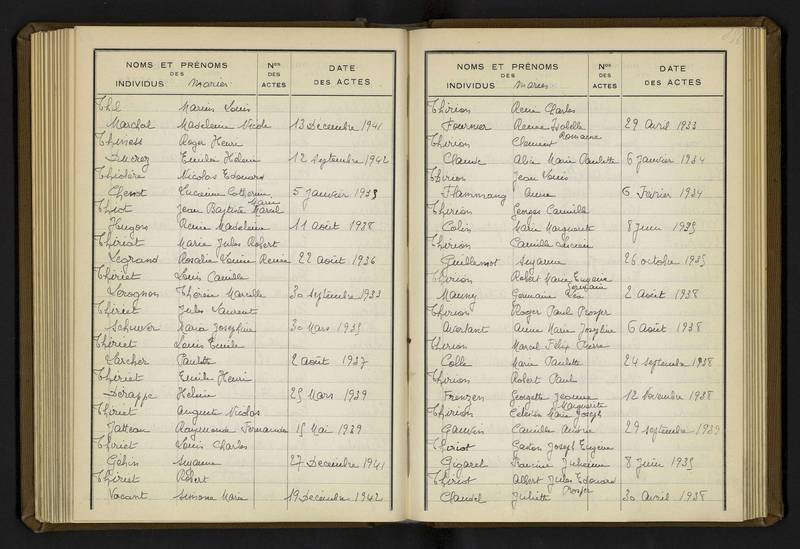 NOMS ET PRÉNOMS
DES
INDIVIDUS Mariés
Nos DES ACTES
DATE
DES ACTES
Thil Marius Louis
Marchal Madeleine Nicole 13 Décembre 1941
Thiness Roger Henri
Ducroz Emilia Hélène 12 septembre 1942
Nicolas Edouard
Chenot Lucienne Catherine 5 Janvier 1935
Marie
Thiot Jean Baptiste Marcel
Hugon Reine Madeleine 11 août 1938
Thiriat Marie Jules Robert
Legrand Rosalie Louise Renée 22 août 1936
Thiriet Louis Camille
Lerognon Thérèse Marcelle 30 septembre 1933
Thiriet Jules Laurent
Schuver Maria Joséphine 30 Mars 1935
Thiriet Louis Emile
Larcher Paulette 2 août 1937
Thiriet Emile Henri
Dérappe Hélène 25 Mars 1939
Thiriet Auguste Nicolas
Jatteau Raymonde Fernande 15 Mai 1939
Thiriet Louis Charles
Géhin Suzanne 27 Décembre 1941
Thiriet Robert
Vacant Simone Marie 19 Décembre 1942
NOMS ET PRÉNOMS
DES
INDIVIDUS Mariés
Nos DES ACTES
DATE
DES ACTES
Thirion René Charles
Fournier Reine Isabelle 29 Avril 1933
Romaine
Thirion Clément
Claude Alice Marie Paulette 6 Janvier 1934
Thirion Jean Louis
Flammang Anne 6 Février 1934
Thirion Georges Camille
Colin Marie Marguerite 8 Juin 1935
Thirion Camille Lucien
Guillemot Suzanne 26 octobre 1935
Thirion Robert Marie Eugène
Germain
Mauny Germaine Léa 2 Août 1938
Thirion Roger Paul Prosper
Anne Marie Joséphine 6 Août 1938
Thirion Marcel Félix Pierre
Colle Marie Paulette 24 septembre 1938
Thirion Robert Paul
Frenzen Georgette Jeanne 12 Novembre 1938
Marguerite
Thirion Célestin Marie Joseph
Gauvin Camille 29 septembre 1939
Thiriot Gaston Joseph Eugène
Gigarel Francine Julienne 8 Juin 1935
Thiriot Albert Jules Edouard
Prosper
Claudel Juliette 30 Avril 1938